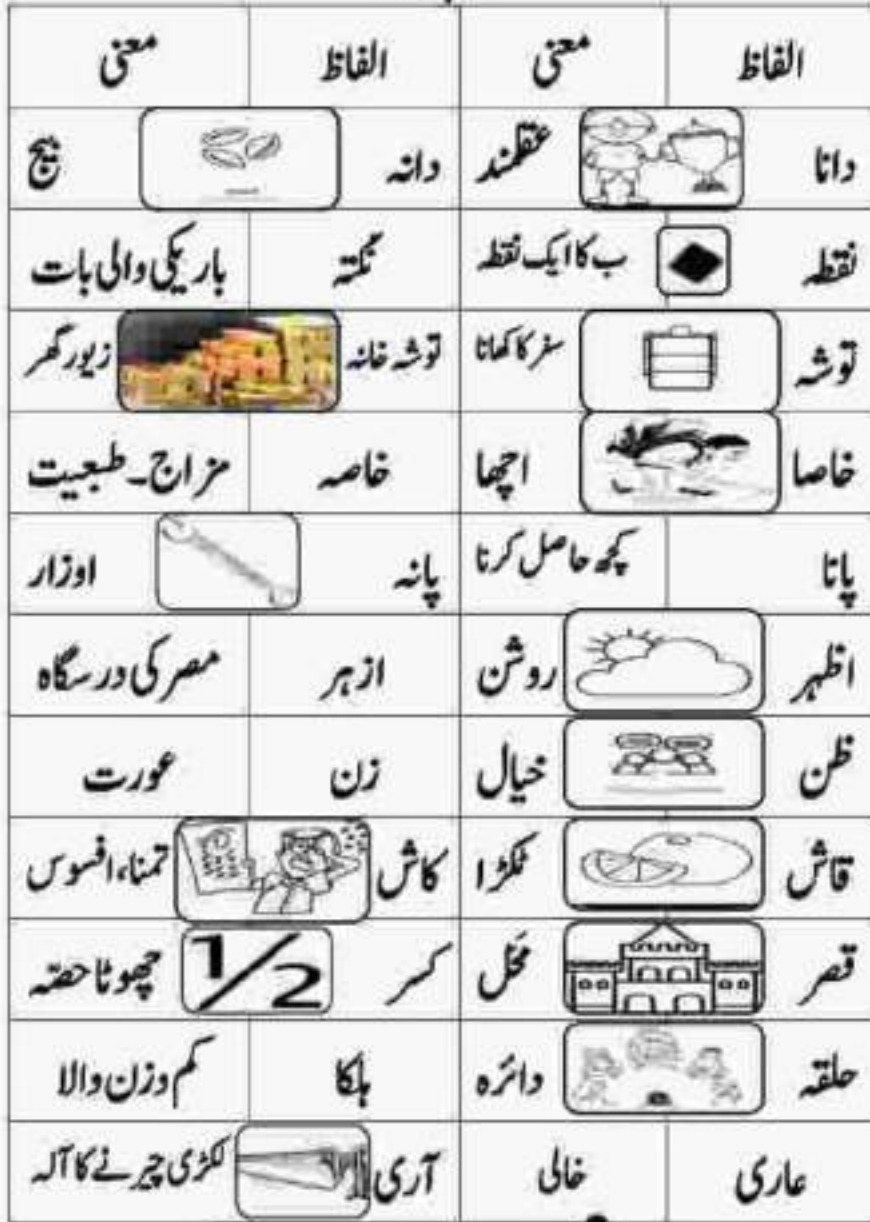 الفاظ معنی الفاظ معنی
دانا عقلمند دانہ بیج
نقطہ ب کا ایک نقطہ نکتہ باریکی والی بات
توشہ سفر کا کھانا توشہ خانہ زیور گھر
خاصا اچھا خاصہ مزاج۔ طبعیت
پانا کچھ حاصل کرنا پانہ اوزار
اظہر روشن ازہر مصر کی درسگاہ
ظن خیال زن عورت
قاش ٹکڑا کاش تمنا، افسوس
قصر محَل کسر 1/2 چھوٹا حصّہ
حلقہ دائرہ ہلکا کم وزن والا
عاری خالی آری لکڑی چیرنے کا آلہ